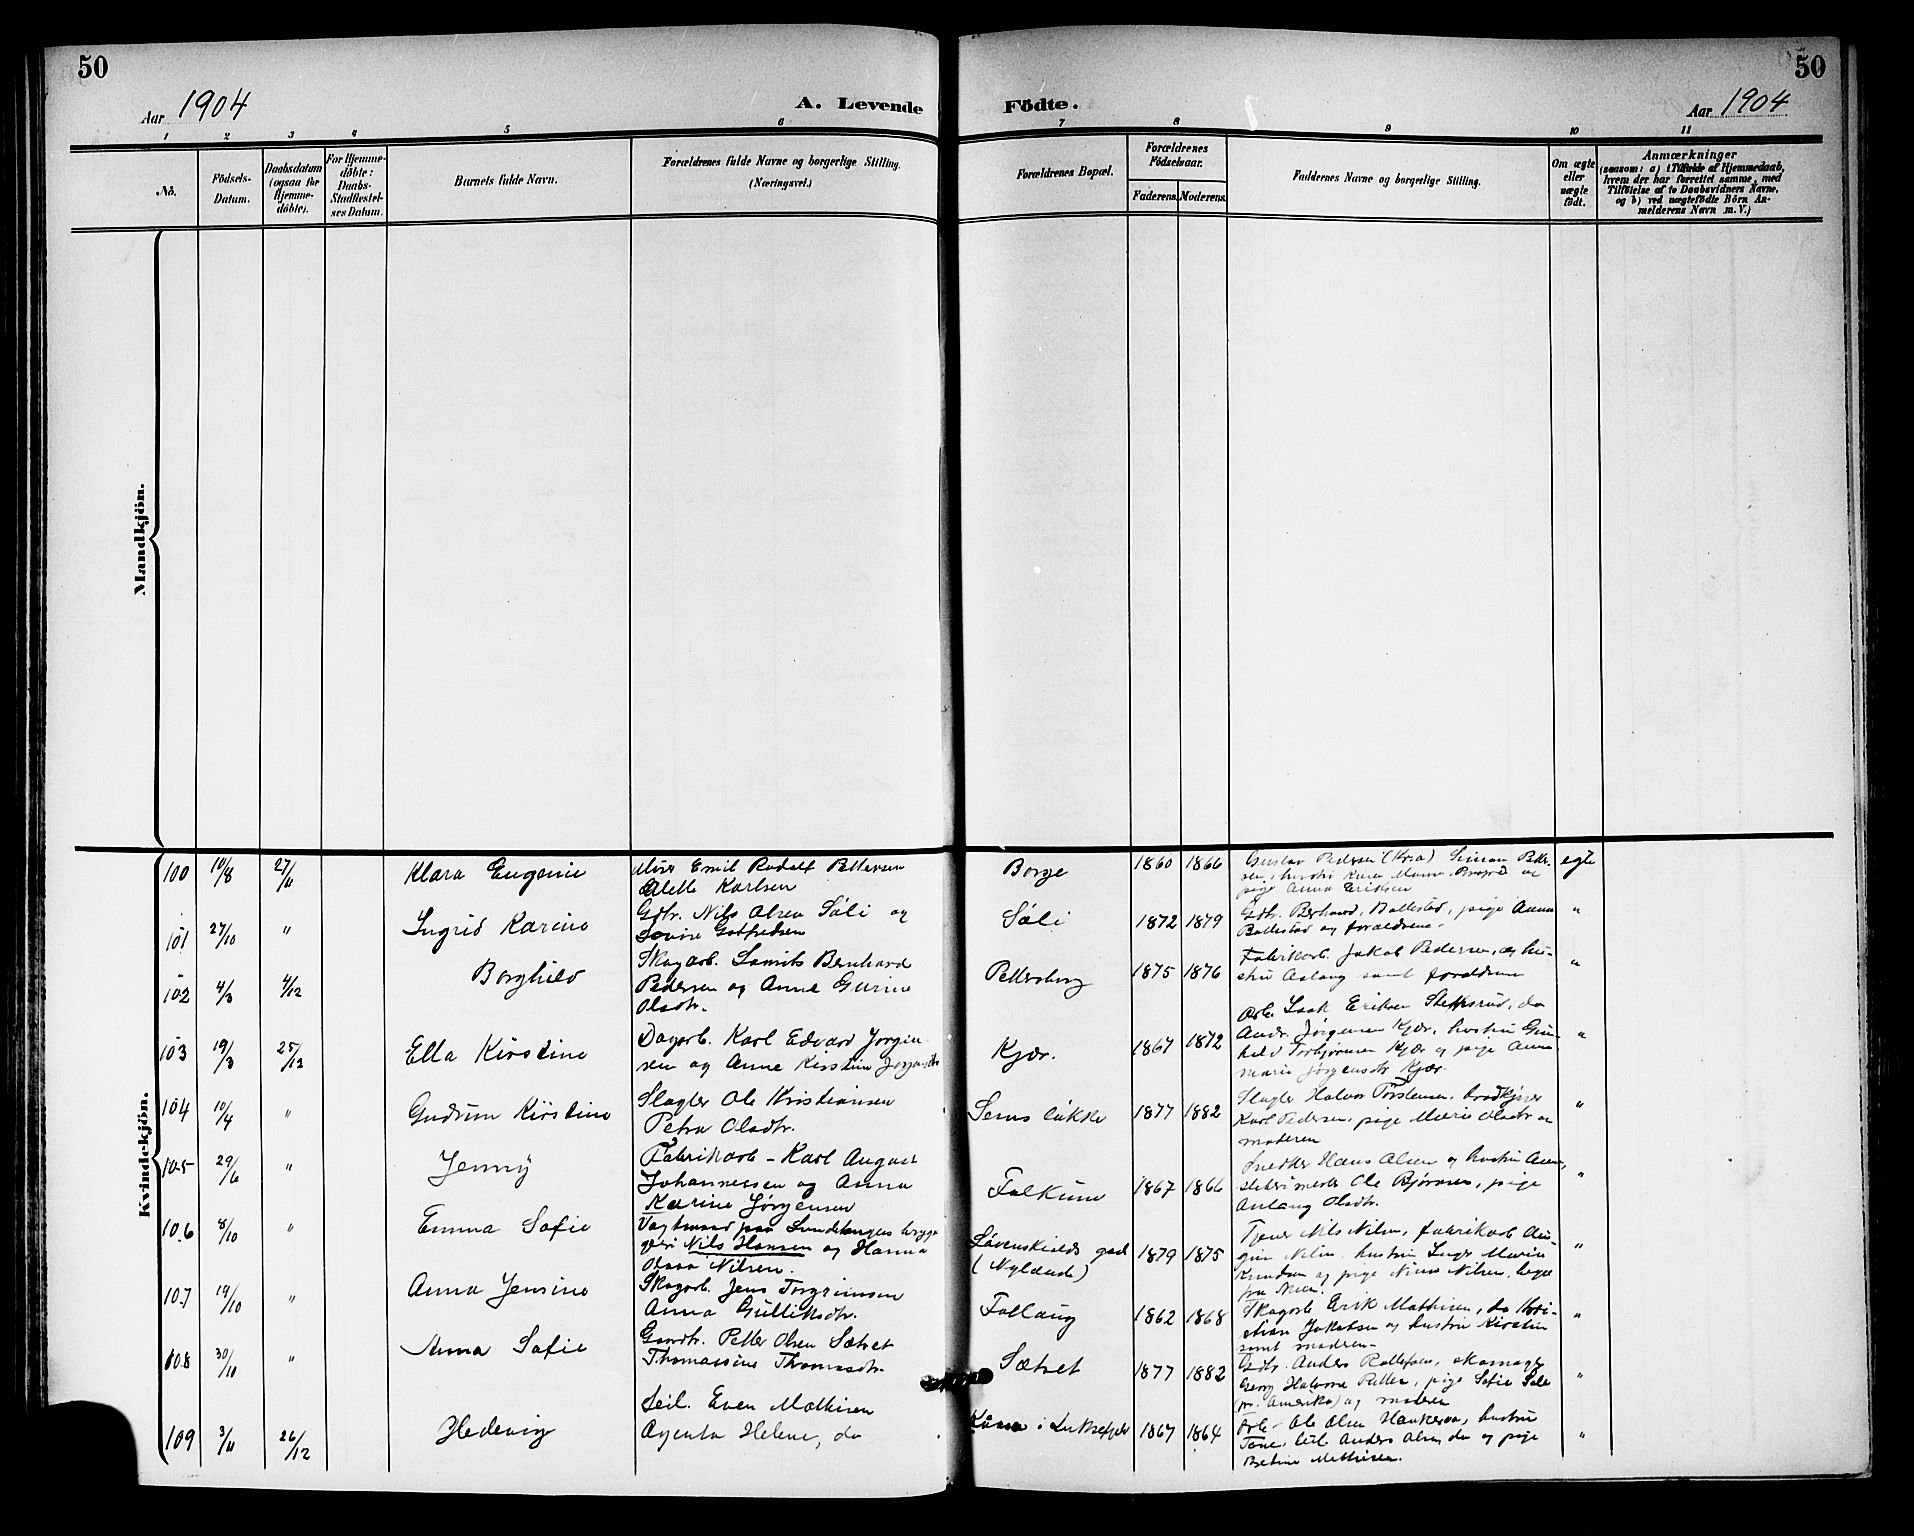 50
50
Aar 1904
A. Levende
Födte.
Aar 1904
1 2 3 4 5 6 7 8 9 10 11
No.
Födsels-Datum.
Daabsdatum (ogsaa for Hjemme-döbte).
For Hjemme-döbte: Daabs-Stadfæstel-ses Datum.
Barnets fulde Navn.
Forældrenes fulde Navne og borgerlige Stilling. (Næringsvei.)
Forældrenes Bopæl.
Forældrenes Födselsaar.
Faderens.
Moderens.
Faddernes Navne og borgerlige Stilling.
Om ægte eller uægte födt.
Anmærkninger
(saasom: a) i Tilfælde af Hjemmedaab,
hvem der har forrettet samme, med
Tilföielse af to Daabsvidners Navne.
og b) ved uægtefödte Börn An-
melderens Navn m. V.)
Mandkjön.
Kvindekjön.
100 10/8 27/11 Klara Eugenie
Murer Emil Rudolf Pettersen
Alette Karlsen
Borge 1860 1866
Gustav Pedersen (Kra) Simon Petter-
sen, hustru Karen
pige Anna Eriksen
egte
101 27/10 " Ingrid Karine
Gdbr. Nils Olsen Søli og
Lovise Gotfredsen
Søli 1872 1879
Gdbr. Berhard, Bollestad, pige Anna
Bollestad og forældrene.
"
102 4/3 4/12 Borghild
Skogarb. Laurits Bernhard
Pedersen og Anne Gurine
Olsdtr.
Pettersborg 1875 1876
Fabrikarb. Jakob Pedersen, og hu-
stru Aslaug samt forældrene
"
103 19/3 25/12 Ella Kirstine
Dagarb. Karl Edvard Jørgen-
sen og Anne Kirstine Jørgensdtr
Kjær. 1867 1872
Arb. Isak Eriksen do
Andr. Jørgensen Kjær, hustru Gun-
hild Torbjørnsen Kjær og pige Anne
marie Jørgensdtr Kjær.
"
104 10/4 " Gudrun Kirstine
Slagter Ole Kristiansen
Petra Olsdtr.
Sems løkke 1877 1882
Slagter Halvor Torstensen, brødkjører
Karl Pedersen, pige Marie Olsdtr og
moderen
"
105 29/6 " Jenny
Fabrikarb - Karl August
Johannessen og Anna
Karine Jørgensen
Falkum 1867 1866
Snedker Hans Olsen og hustru Anna,
Ole Bjørnsen, pige
Aslaug Olsdtr.
"
106 8/10 " Emma Sofie
Vagtmand paa Lundetangens brygge
veri Nils Hansen og Hanna
Olava Nilsen.
Løvenskiolds gad
(Nylænde) 1879 1875
Tjener Nils Nilsen, fabrikarb
Nilsen, hustru Inger Marie
Knudsen og pige Nina Nilsen, begge
fra Skien.
"
107 19/10 " Anna Jensine
Skogarb. Jens Torgrimsen
Anna Gulliksdtr.
Follaug 1862 1868
Skogarb Erik Mathisen, do Kri-
stian Jakobsen og hustru Kirstin
samt moderen
"
108 30/10 " Anna Sofie
Gaardbr. Petter Olsen Sætret
Thomassine Thomasdtr.
Sætret 1877 1882
Gdbr. Anders Rollefsen, skomager
Georg Halvorsen, pige Sofie
(Amerika) og moderen
"
109 3/11 26/12 Hedevig
Seil. Even Mathisen
Agenta Helene, do
i Luksefjeld 1867 1864
Arb. Ole Olsen, hustru
Tone, Anders Olsen do og pige
Betine Mathisen.
"